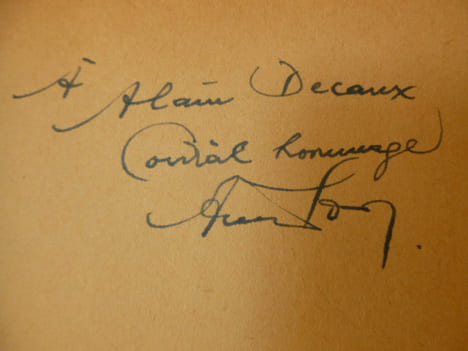 À Alain Decaux
Cordial hommage